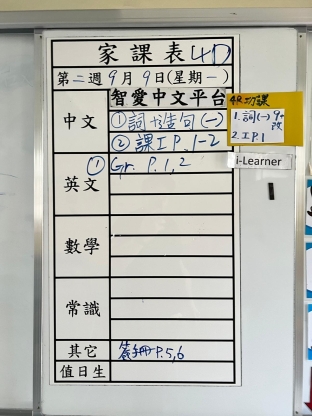 家課表(4D)
第二週9月9日(星期一)
智愛中文平台
中文
①詞+造句(一)
②課工P.1-2
4R功課
1.詞(一)
2.工P.1
i-Learner
英文
①Gr. P.1,2
數學
常識
其它
簽手冊P.5,6
值日生